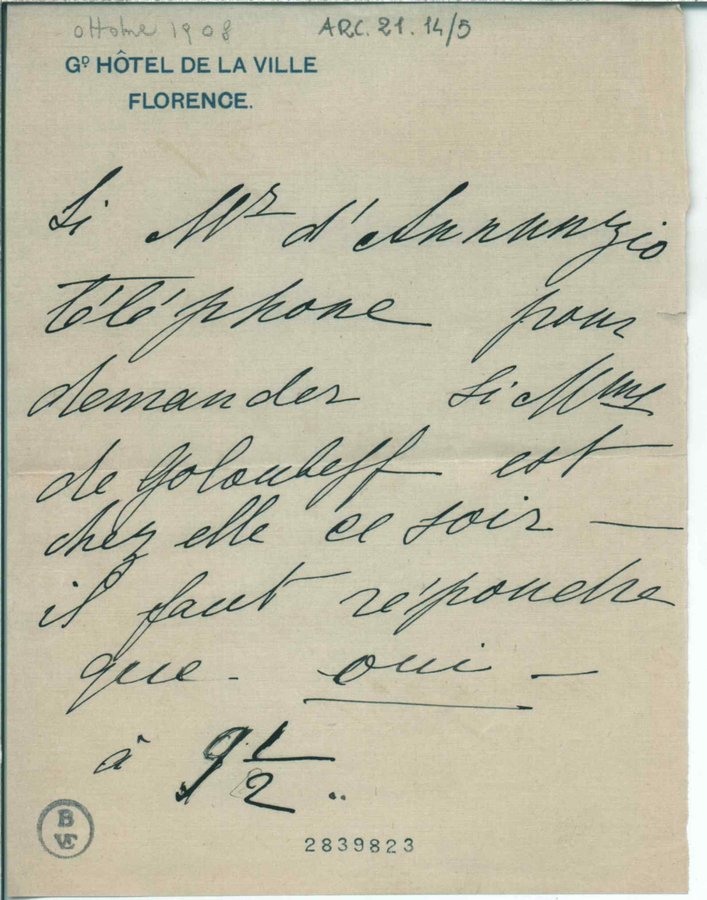 ottobre 1908 ARC. 21. 14/5
Gᴰ HÔTEL DE LA VILLE
FLORENCE.
Si Mr d'Annunzio
téléphone pour
demander si Mme
de Goloubeff est
chez elle ce soir —
il faut répondre
que - oui —
à 9 1/2 ..
B
VE
2839823